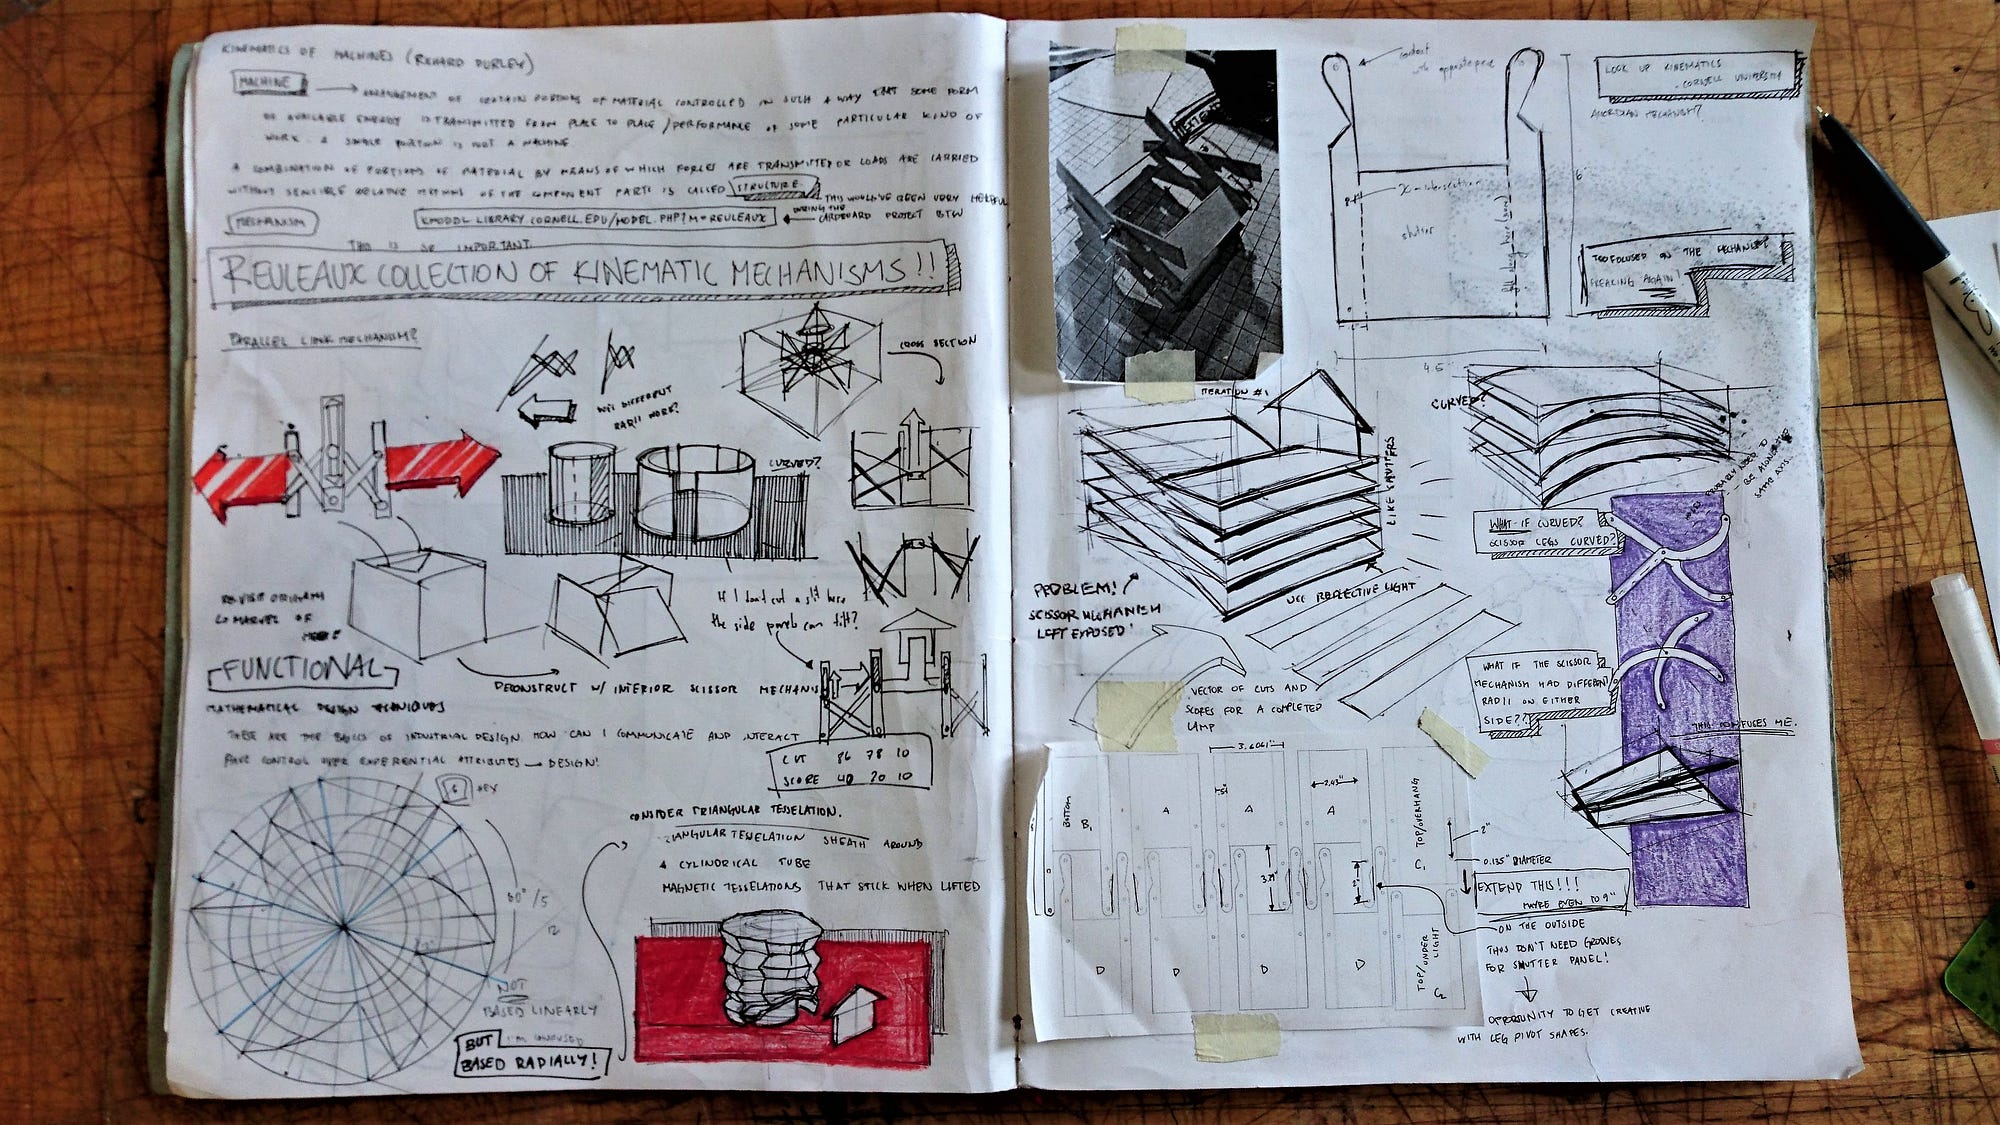 KINEMATICS OF MACHINES (RICHARD DURLEY)
MACHINE
ARRANGEMENT OF CERTAIN PORTIONS OF MATERIAL CONTROLLED IN SUCH A WAY THAT SOME FORM
OF AVAILABLE ENERGY IS TRANSMITTED FROM PLACE TO PLACE / PERFORMANCE OF SOME PARTICULAR KIND OF
WORK. A SINGLE PORTION IS NOT A MACHINE
A COMBINATION OF PORTIONS OF MATERIAL BY MEANS OF WHICH FORCES ARE TRANSMITTED OR LOADS ARE CARRIED
WITHOUT SENSIBLE RELATIVE MOTIONS OF THE COMPONENT PARTS IS CALLED STRUCTURE.
THIS WOULD'VE BEEN VERY HELPFUL
DURING THE
CARDBOARD PROJECT BTW
MECHANISM
KMODDL.LIBRARY.CORNELL.EDU/MODEL.PHP?M=REULEAUX
THIS IS SO IMPORTANT
REULEAUX COLLECTION OF KINEMATIC MECHANISMS!!
PARALLEL LINK MECHANISM?
WILL DIFFERENT
RADII WORK?
CROSS SECTION
CURVED?
REVISIT ORIGAMI
FUNCTIONAL
If I don't cut a slit here
the side panels can tilt?
DECONSTRUCT W/ INTERIOR SCISSOR MECHANIS
MATHEMATICAL DESIGN TECHNIQUES
THESE ARE THE BASICS OF INDUSTRIAL DESIGN. HOW CAN I COMMUNICATE AND INTERACT
HAVE CONTROL OVER EXPERIENTIAL ATTRIBUTES → DESIGN!
CUT 86 78 10
SCORE 40 20 10
CONSIDER TRIANGULAR TESSELATION.
TESSELATION SHEATH AROUND
A CYLINDRICAL TUBE
MAGNETIC TESSELATIONS THAT STICK WHEN LIFTED
60°/5
12
NOT
BASED LINEARLY
I'M CONFUSED
BUT
BASED RADIALLY!
contact
with opposite piece
LOOK UP KINEMATICS
- CORNELL UNIVERSITY
ACCORDIAN MECHANISM?
6"
shutter
TOO FOCUSED ON THE MECHANISM
FREAKING AGAIN!
4.5"
ITERATION #1
LIKE SHUTTERS
CURVED?
SAME AXIS
WHAT IF CURVED?
SCISSOR LEGS CURVED?
PROBLEM!
SCISSOR MECHANISM
LEFT EXPOSED!
USE REFLECTIVE LIGHT
WHAT IF THE SCISSOR
MECHANISM HAD DIFFERENT
RADII ON EITHER
SIDE??
THIS CONFUSES ME.
VECTOR OF CUTS AND
SCORES FOR A COMPLETED
LAMP
3.6061"
2.43"
BOTTOM
B1
A
A
A
TOP/OVERHANG
C1
3.29"
2"
2"
0.135" DIAMETER
EXTEND THIS!!!
MAYBE EVEN TO 9"
ON THE OUTSIDE
THUS DON'T NEED GROOVES
FOR SHUTTER PANEL!
D
D
D
D
TOP/UNDER
LIGHT
C2
OPPORTUNITY TO GET CREATIVE
WITH LEG PIVOT SHAPES.